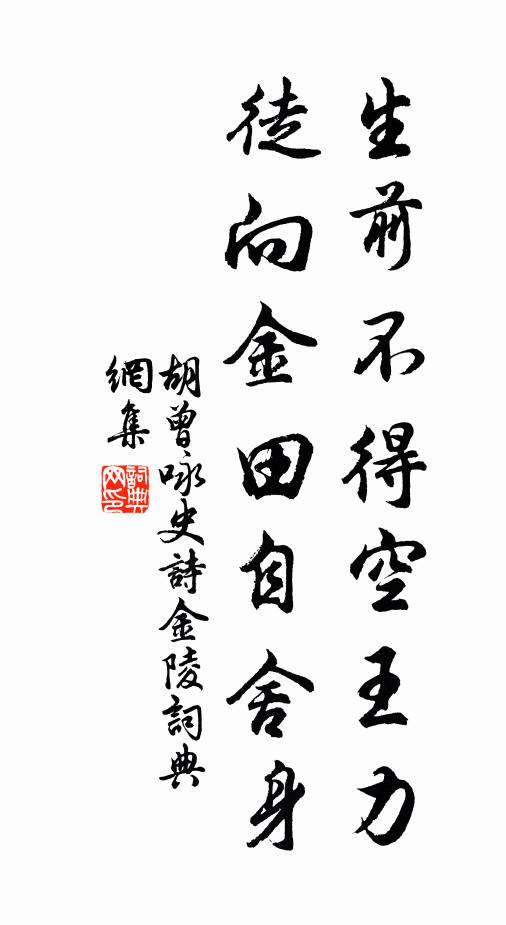 生前不得空王力
徒向金田自舍身
胡曾咏史詩金陵詞典
網集
詞典網印